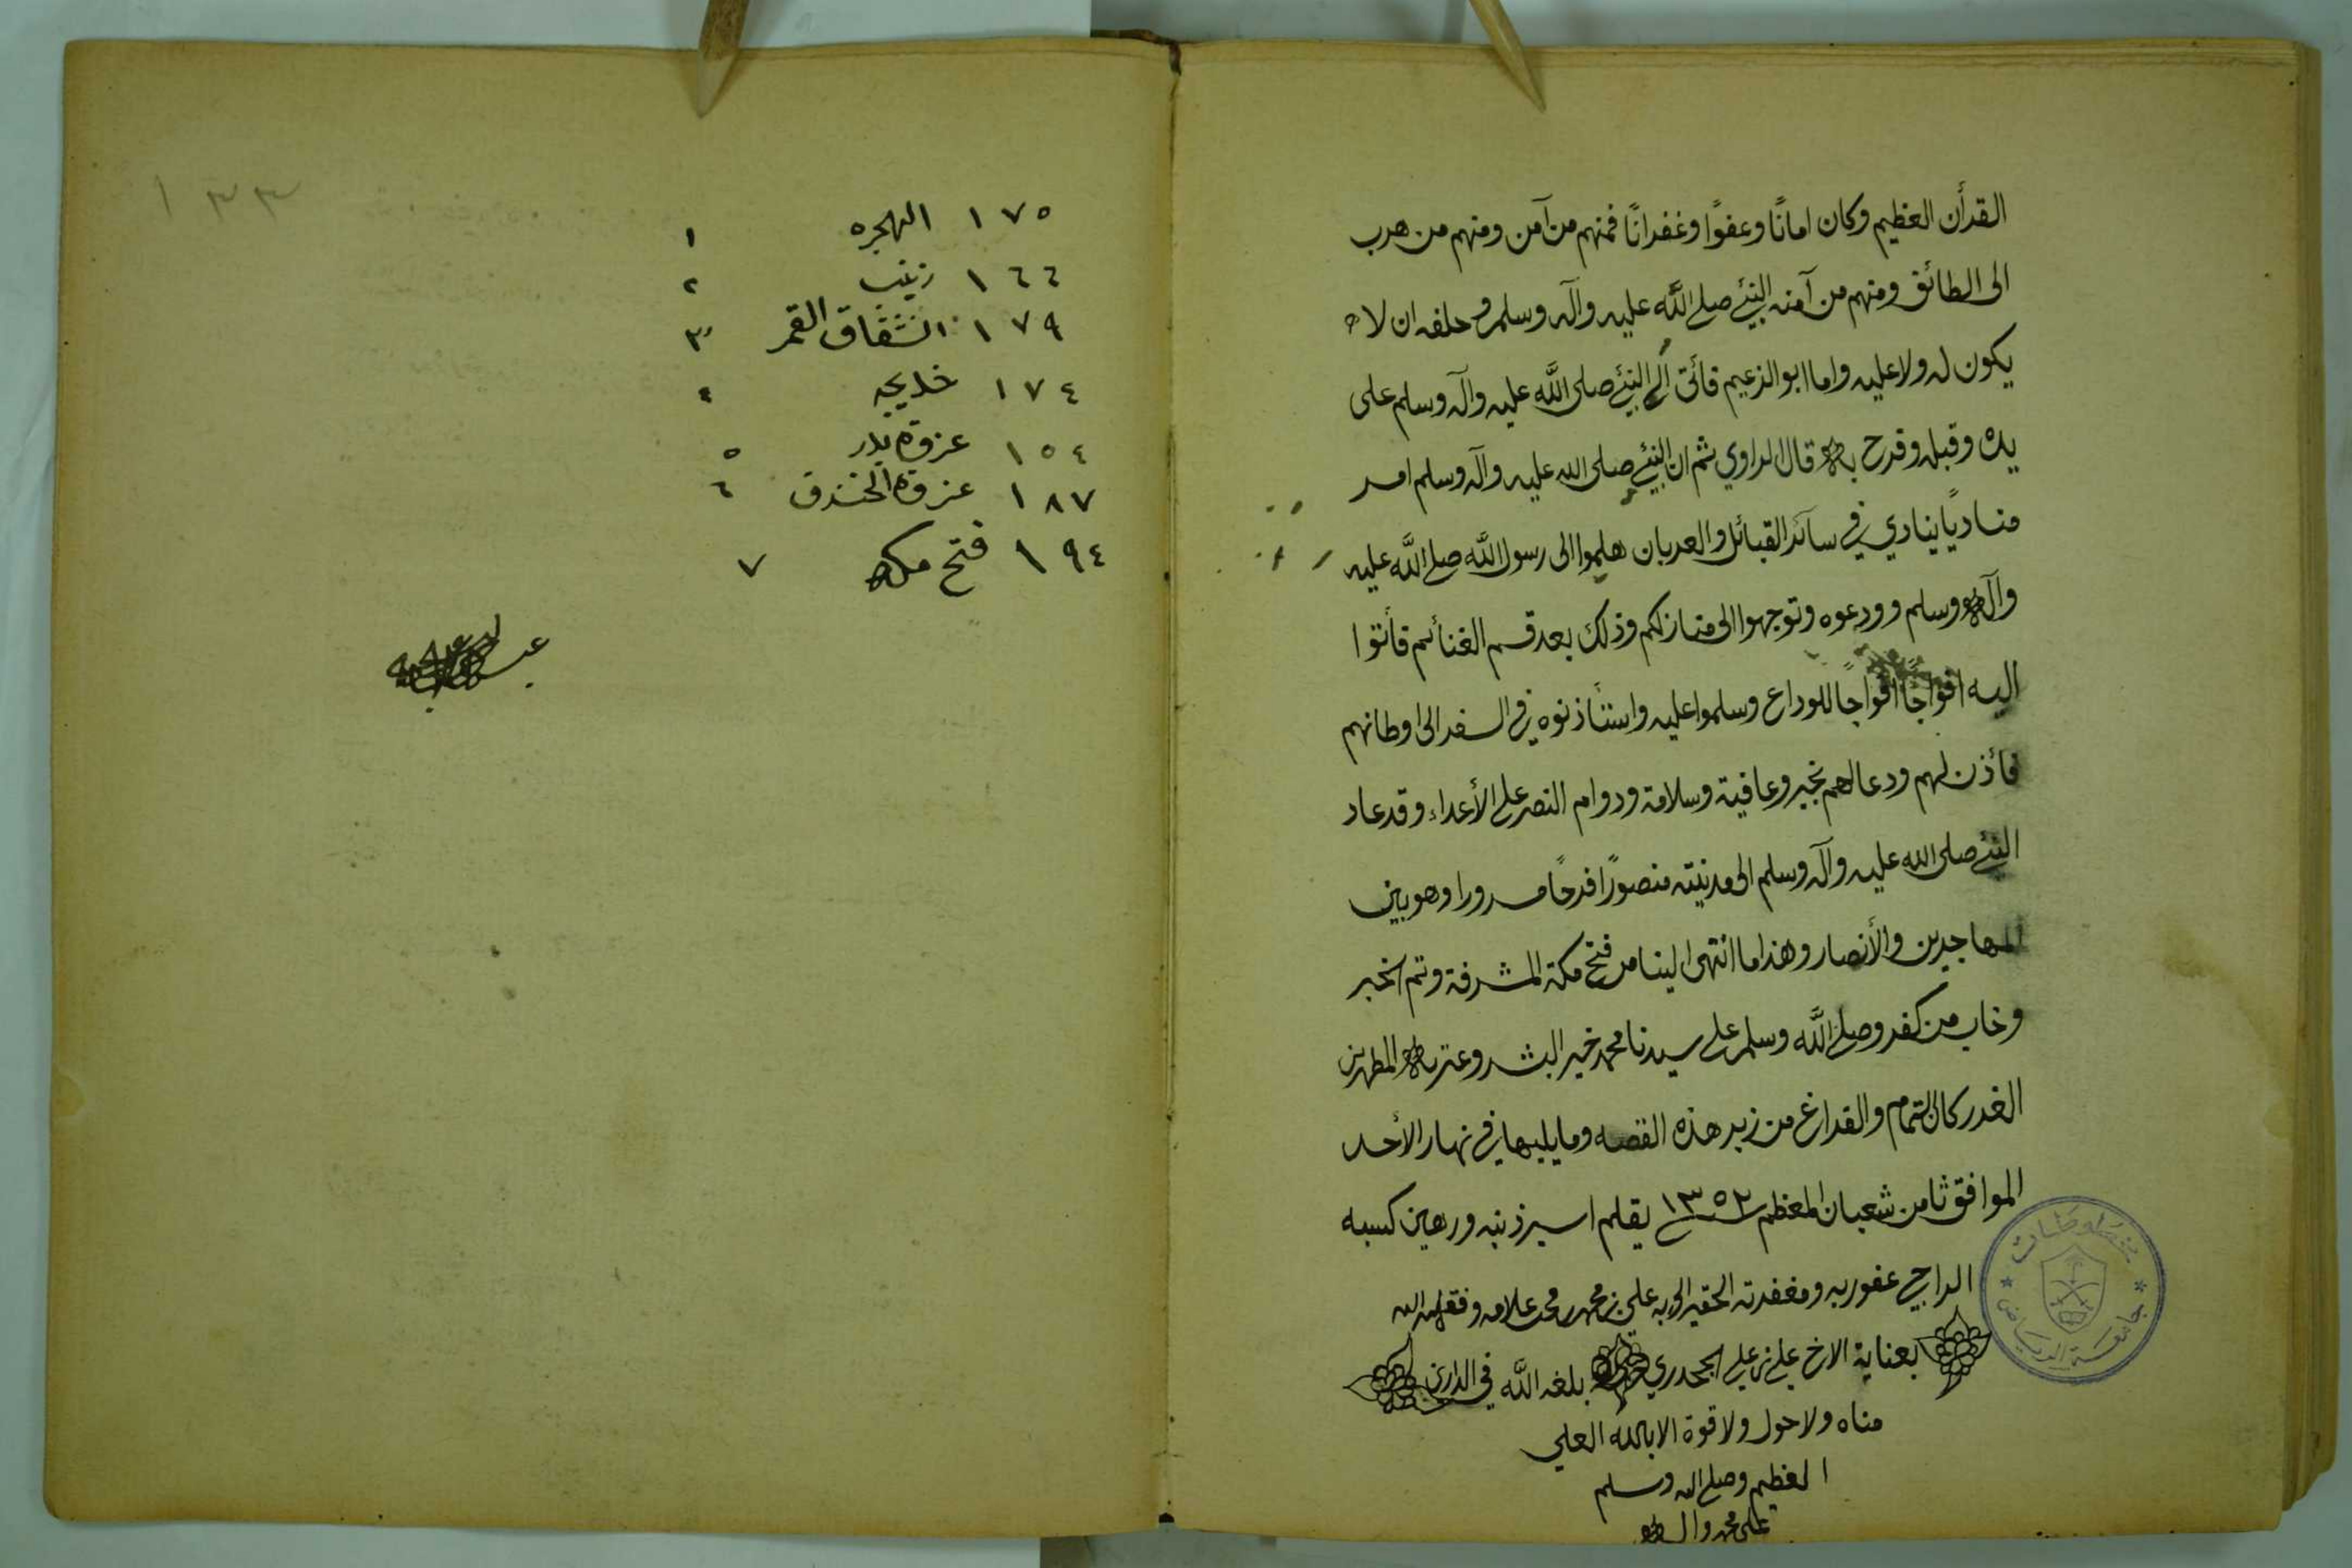 القرأن العظيم وكان امانًا وعفوًا وغفرانًا فمنهم من آمن ومنهم من هرب
الى الطائق ومنهم من آمنه النبيئ صلى الله عليه وآله وسلم وحلفه ان لا
يكون له ولا عليه واما ابو الزعيم فأتى الى النبيئ صلى الله عليه وآله وسلم على
يده وقبله وفرح به قال الراوي ثم ان النبيئ صلى الله عليه وآله وسلم امر
مناديًا ينادي في سآئر القبائل والعربان هلموا الى رسول الله صلى الله عليه
وآله وسلم وودعوه وتوجهوا الى منازلكم وذلك بعد قسم الغنائم فأتوا
اليه افواجًا افواجًا للوداع وسلموا عليه واستأذنوه في السفر الى اوطانهم
فأذن لهم ودعا لهم بخير وعافية وسلامة ودوام النصر على الأعداء وقد عاد
النبيئ صلى الله عليه وآله وسلم الى مدينته منصورًا فرحًا مسرورا وهو بين
المهاجرين والأنصار وهذا ما انتهى الينا من فتح مكة المشرفة وتم الخبر
وخاب من كفر وصلى الله وسلم على سيدنا محمد خير البشر وعترته المطهرين
الغرر كان التمام والفراغ من زبر هذه القصه وما يليها في نهار الأحد
الموافق ثامن شعبان المعظم سنة ١٣٥٢ بقلم اسير ذنبه ورهين كسبه
الراجي عفو ربه ومغفرته الحقير الى ربه علي بن محمد محمد علامه وفقه الله
بعناية الاخ علي بن علي الجحدري بلغه الله في الدارين
مناه ولا حول ولا قوة الا بالله العلي
العظيم وصلى الله وسلم
على محمد واله
مخطوطات
جامعة الرياض
١٣٣
١٧٥ الهجره ١
١٦٦ زينب ٢
١٧٩ انشقاق القمر ٣
١٧٤ خديجه ٤
١٥٤ غزوة بدر ٥
١٨٧ غزوة الخندق ٦
١٩٤ فتح مكه ٧